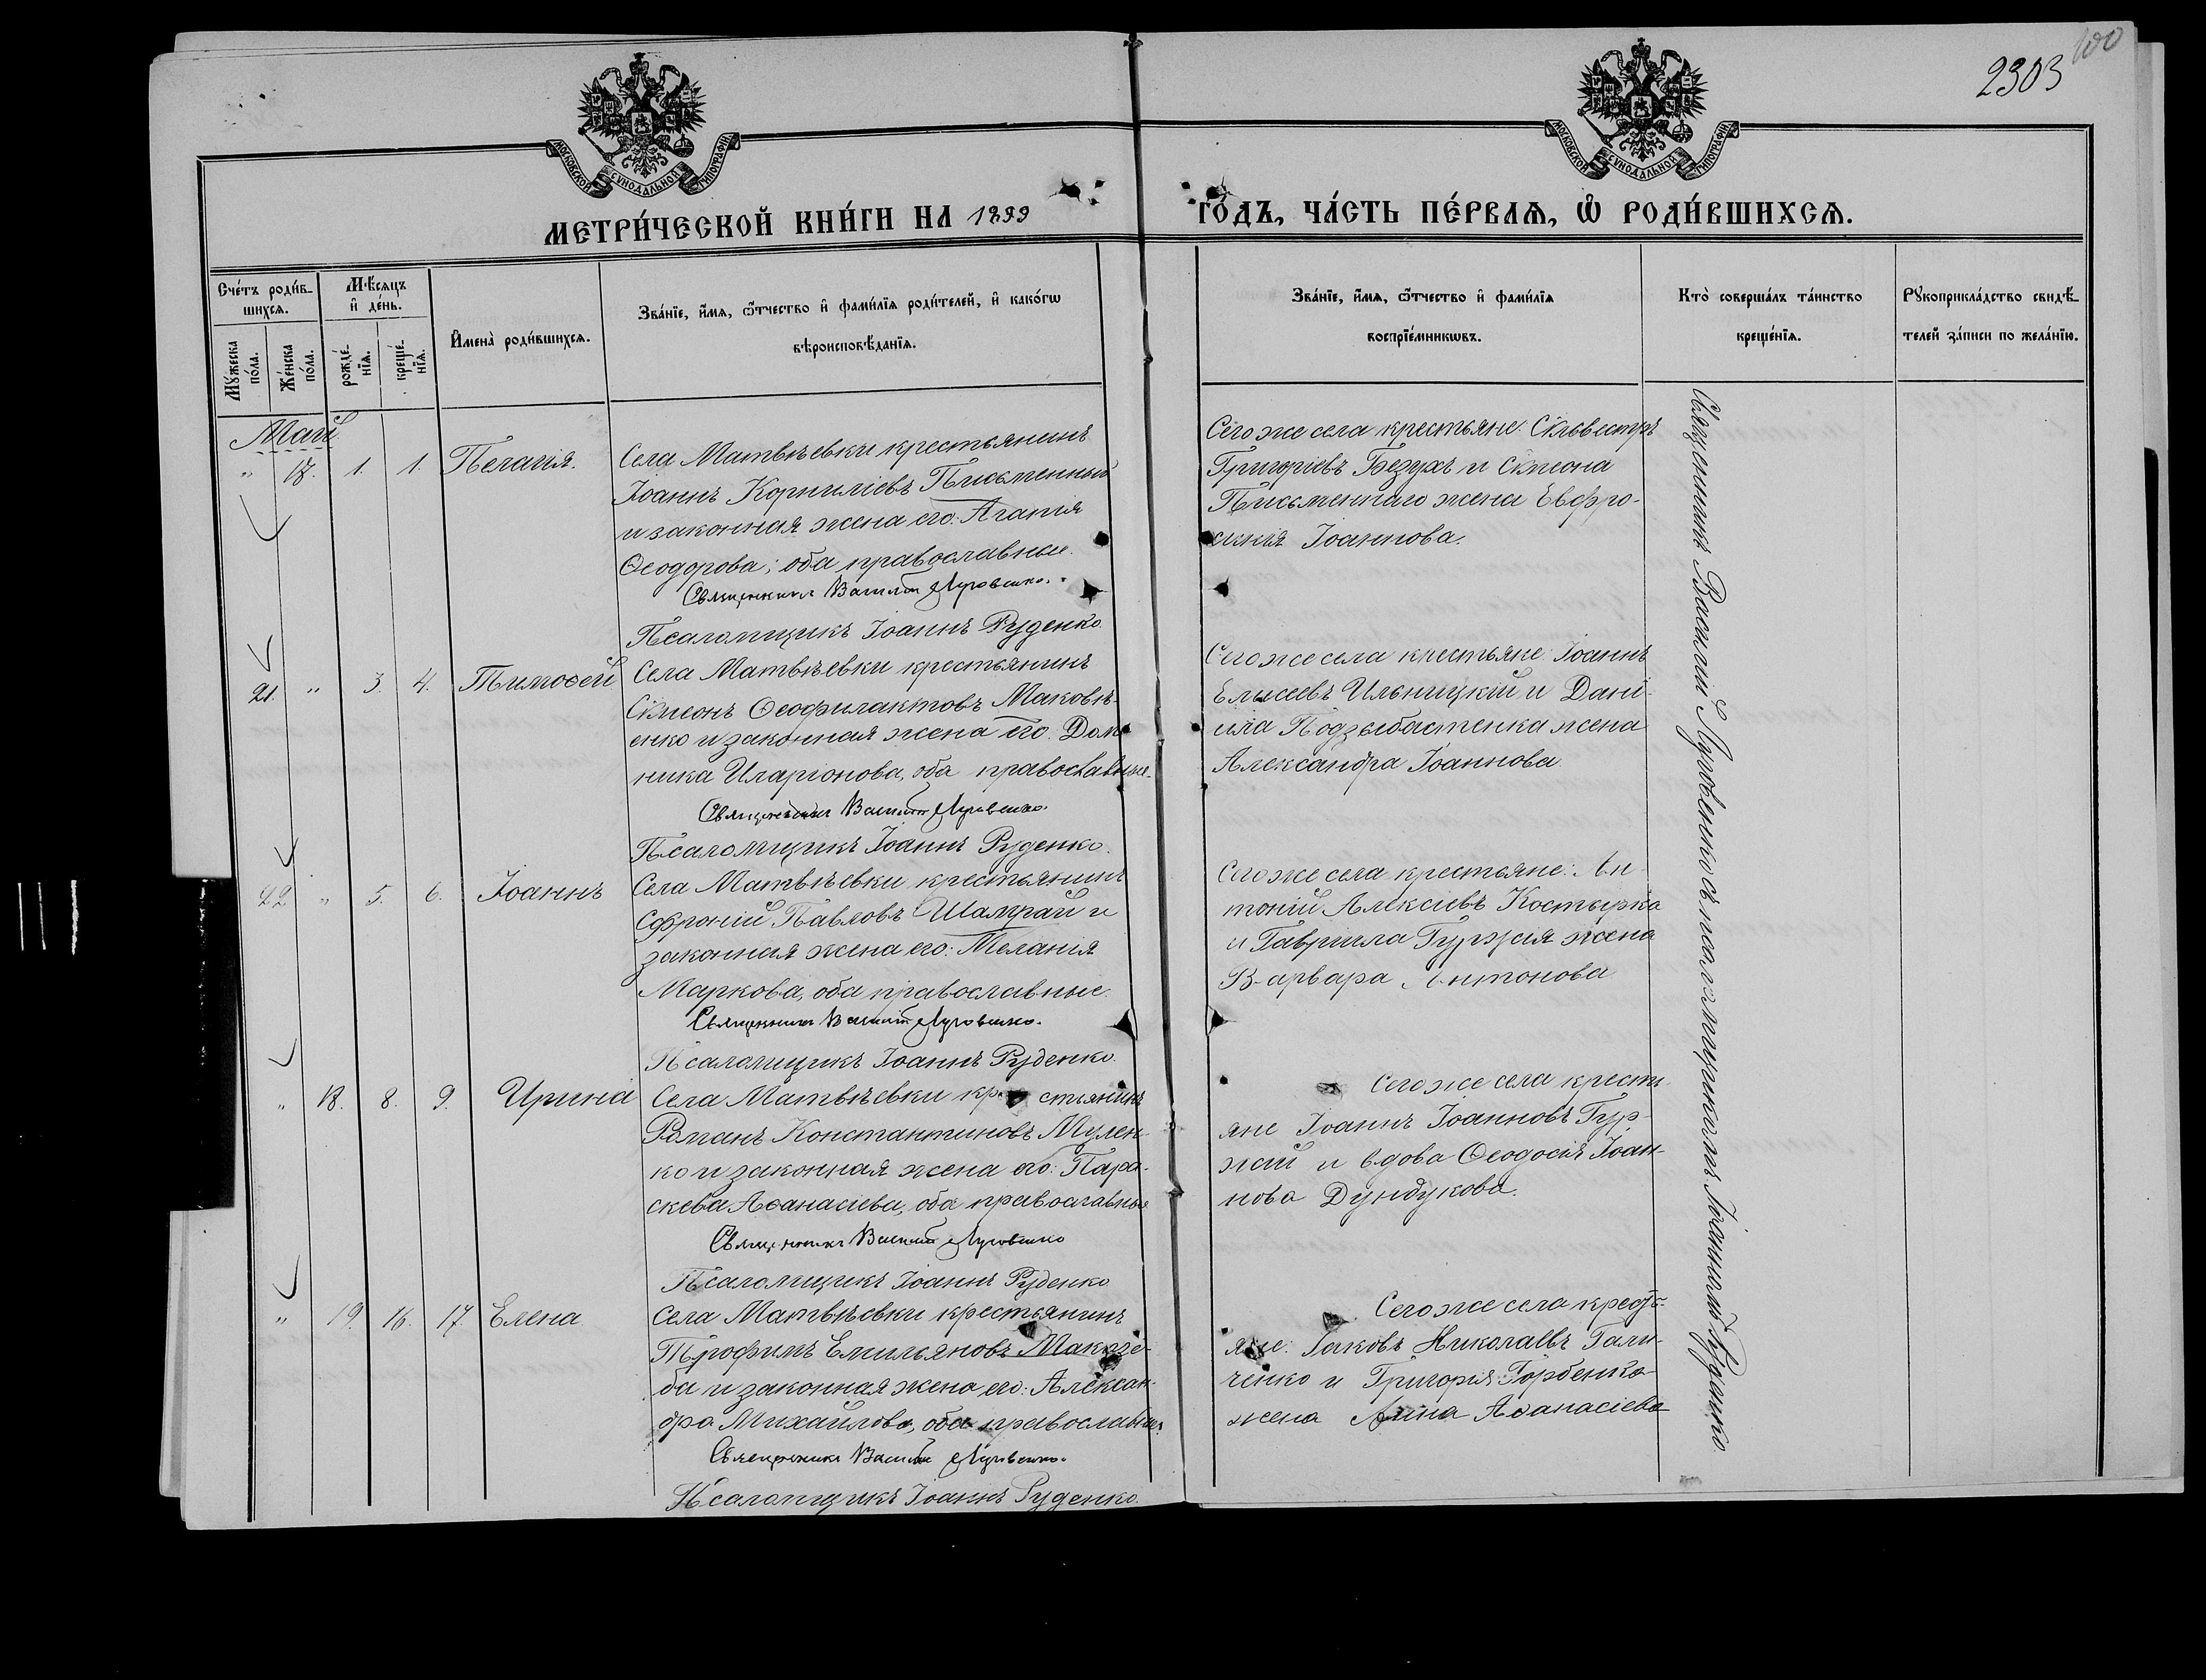 100
2303
МОСКОВСКОЙ СѴНОДАЛЬНОЙ ТИПОГРАФІИ
МОСКОВСКОЙ СѴНОДАЛЬНОЙ ТИПОГРАФІИ
МЕТРИ́ЧЕСКОЙ КНИ́ГИ НА 1899
ГО́ДЪ, ЧА́СТЬ ПЕ́РВАЯ, Ѽ РОДИ́ВШИХСЯ.
Сче́тъ роди́в-
шихся.
Му́жеска по́ла.
Же́нска по́ла.
Мѣ́сяцъ и де́нь.
рожде́-
нїя.
креще́-
нїя.
Имена̀ роди́вшихся.
Зва́нїе, и́мя, ѻ́тчество и фами́лїя роди́телей, и како́гѡ
вѣроисповѣ́данїя.
Зва́нїе, и́мя, ѻ́тчество и фами́лїя
воспрїе́мникѡвъ.
Кто̀ соверша́лъ та́инство
креще́нїя.
Рꙋкоприкла́дство свидѣ́-
телей за́писи по жела́нїю.
Май
" 17. 1. 1. Пелагія.
Села Матвѣевки крестьянинъ
Іоаннъ Корниліевъ Письменный
и законная жена его: Агапія
Ѳеодорова; оба православные.
Священникъ Василій Луговенко.
Псаломщикъ Іоаннъ Руденко.
Сего же села крестьяне: Сильвестръ
Григоріевъ Безухъ и Симеона
Письменнаго жена Евфро-
синія Іоаннова.
21. " 3. 4. Тимоѳей
Села Матвѣевки крестьянинъ
Симеонъ Ѳеофилактовъ Маковѣ-
енко и законная жена его: Дом-
ника Иларіонова, оба православные.
Священникъ Василій Луговенко.
Псаломщикъ Іоаннъ Руденко.
Сего же села крестьяне: Іоаннъ
Елисеевъ Ильницкій и Дані-
ила Подзыбастенка жена
Александра Іоаннова.
22 " 5. 6. Іоаннъ
Села Матвѣевки крестьянинъ
Софроній Павловъ Шамрай и
законная жена его: Меланія
Маркова, оба православные.
Священникъ Василій Луговенко.
Псаломщикъ Іоаннъ Руденко.
Сего же села крестьяне: Ан-
тоній Алексіевъ Костырка
и Гавриила Гуржія жена
Варвара Антонова
" 18. 8. 9. Ирина
Села Матвѣевки крестьянинъ
Романъ Константиновъ Мулен-
ко и законная жена его: Пара-
скева Аѳанасіева, оба православные
Священникъ Василій Луговенко
Псаломщикъ Іоаннъ Руденко
Сего же села кресть-
яне Іоаннъ Іоанновъ Гур-
жій и вдова Ѳеодосія Іоан-
нова Дундукова.
" 19. 16. 17. Елена
Села Матвѣевки крестьянинъ
Трофимъ Емильяновъ
и законная жена его: Алексан-
дра Михайлова, оба православные
Священникъ Василій Луговенко.
Псаломщикъ Іоаннъ Руденко.
Сего же села кресть-
яне: Іаковъ Николаевъ Гали-
ченко и Григорія Горбенка
жена Анна Аѳанасіева
Священникъ Василій Луговенко съ псаломщикомъ Іоанномъ Руденко